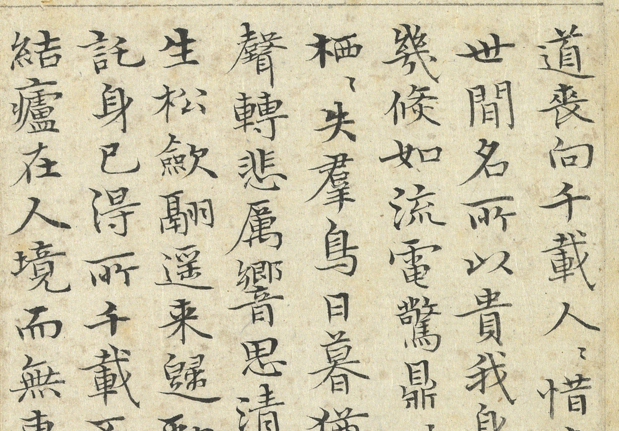 道喪向千載人〻惜
世間名所以貴我身
幾倏如流電驚鼎
栖〻失羣鳥日暮猶
聲轉悲厲響思清
生松斂翮遥来歸
託身已得所千載不
結廬在人境而無車